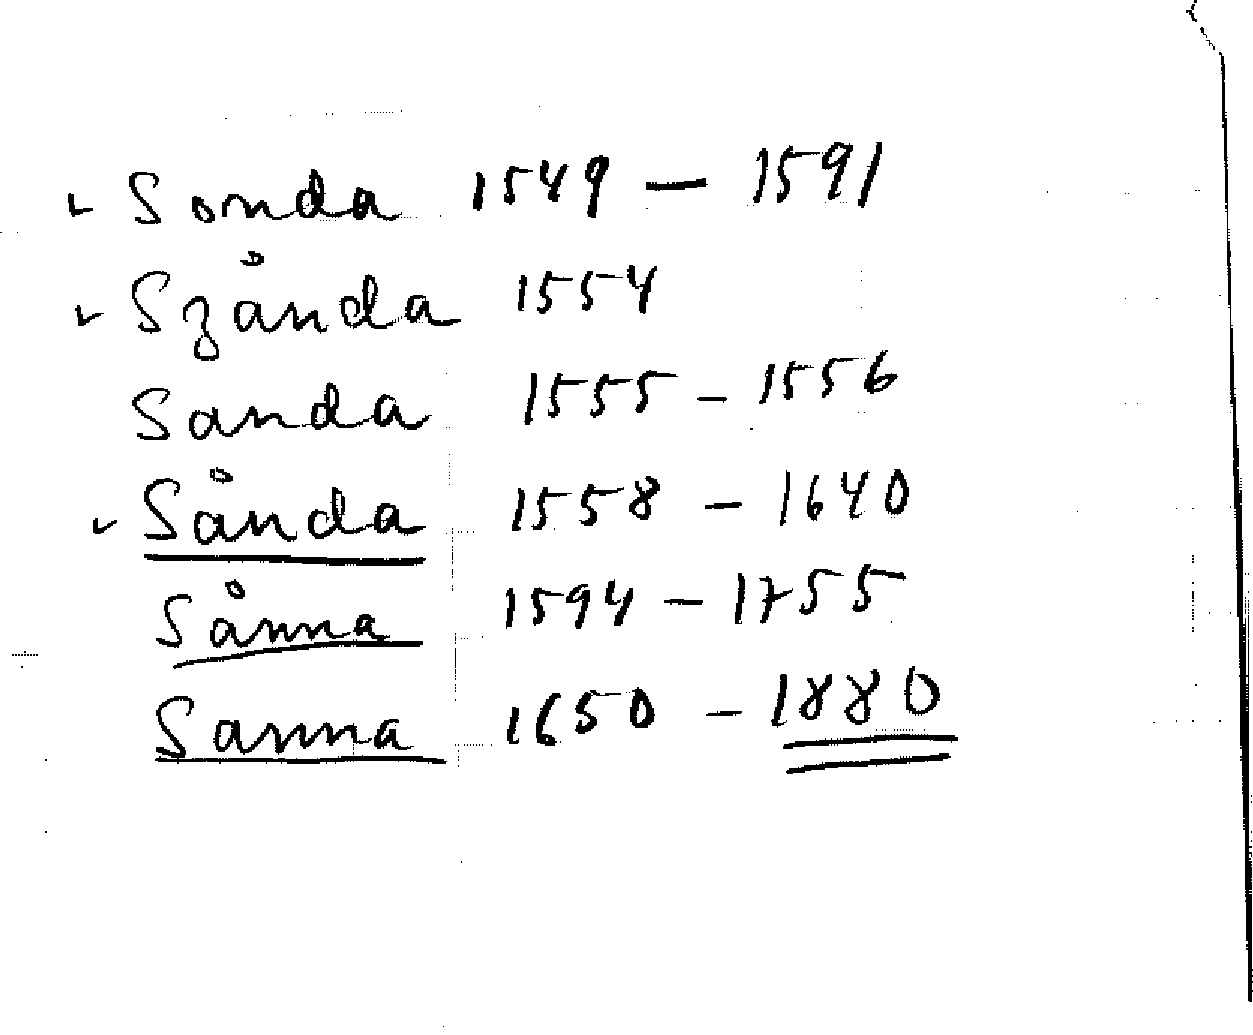 Sonda 1549 – 1591
Szånda 1554
Sanda 1555 – 1556
Sånda 1558 – 1640
Sånna 1594 – 1755
Sanna 1650 – 1880